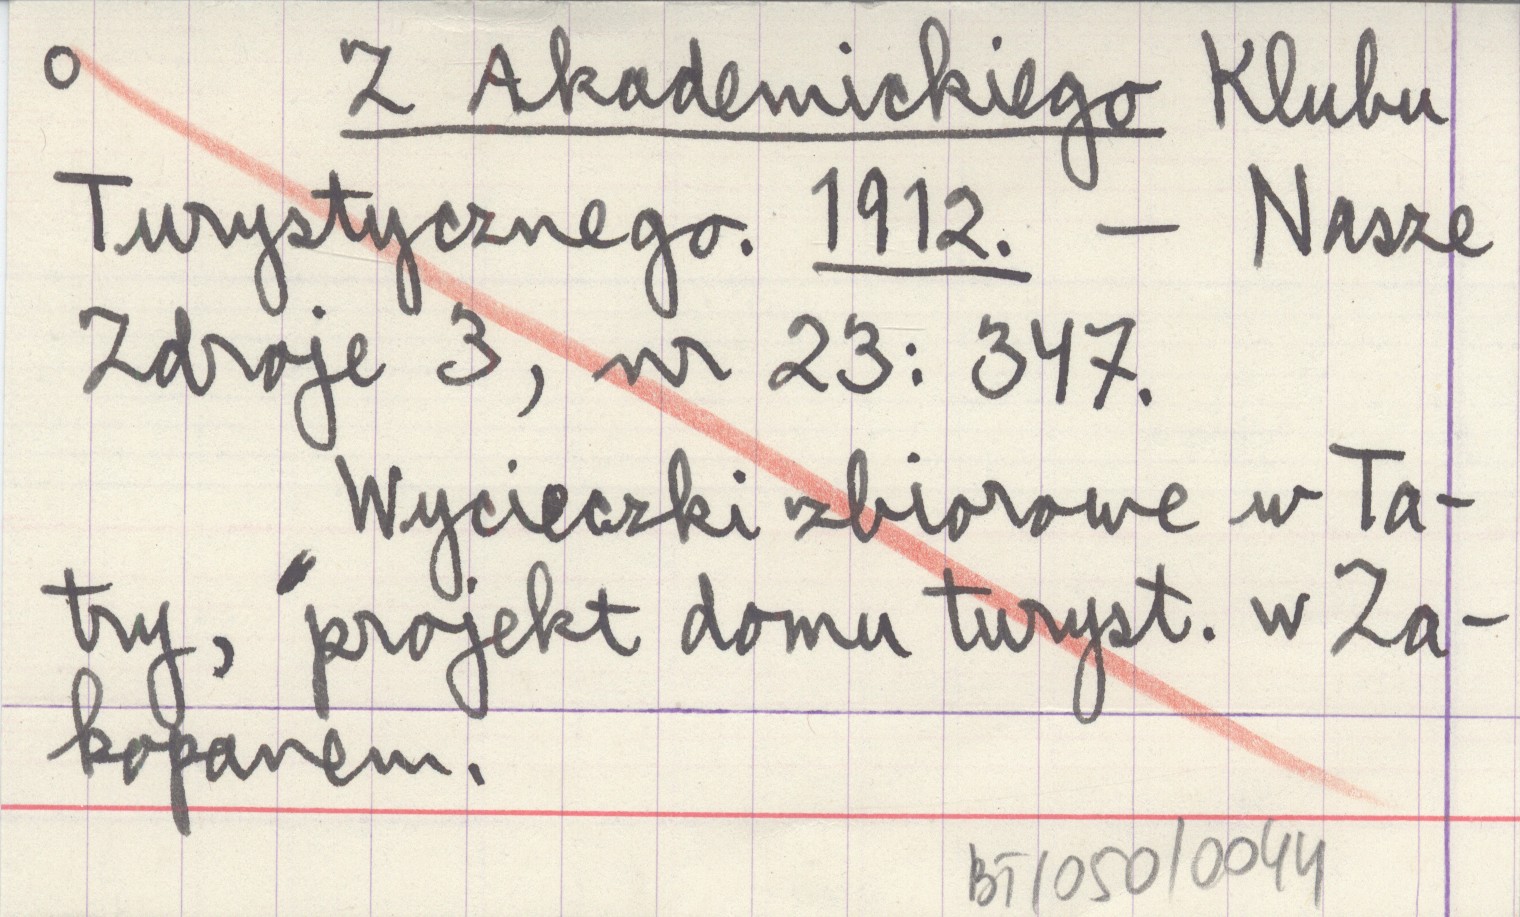 o Z Akademickiego Klubu
Turystycznego. 1912. — Nasze
Zdroje 3, nr 23: 347.
Wycieczki zbiorowe w Ta-
try, projekt domu turyst. w Za-
kopanem.
BT/050/0044